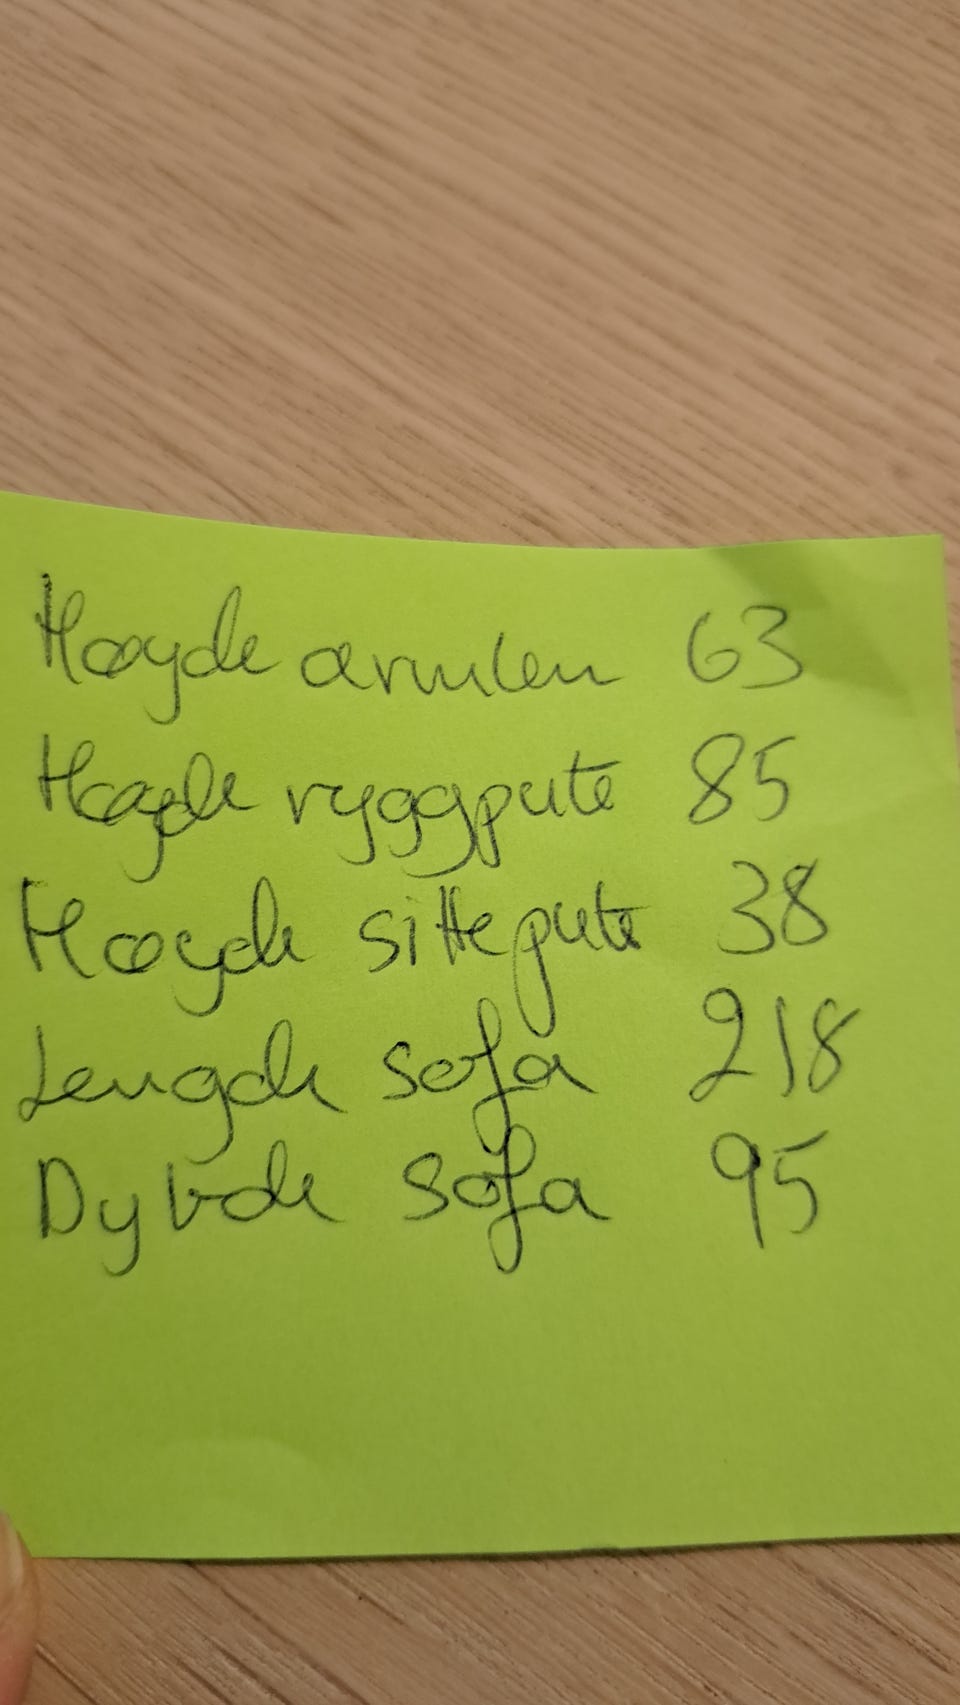 Høyde armlen 63
Høyde ryggpute 85
Høyde sittepute 38
Lengde sofa 218
Dybde sofa 95